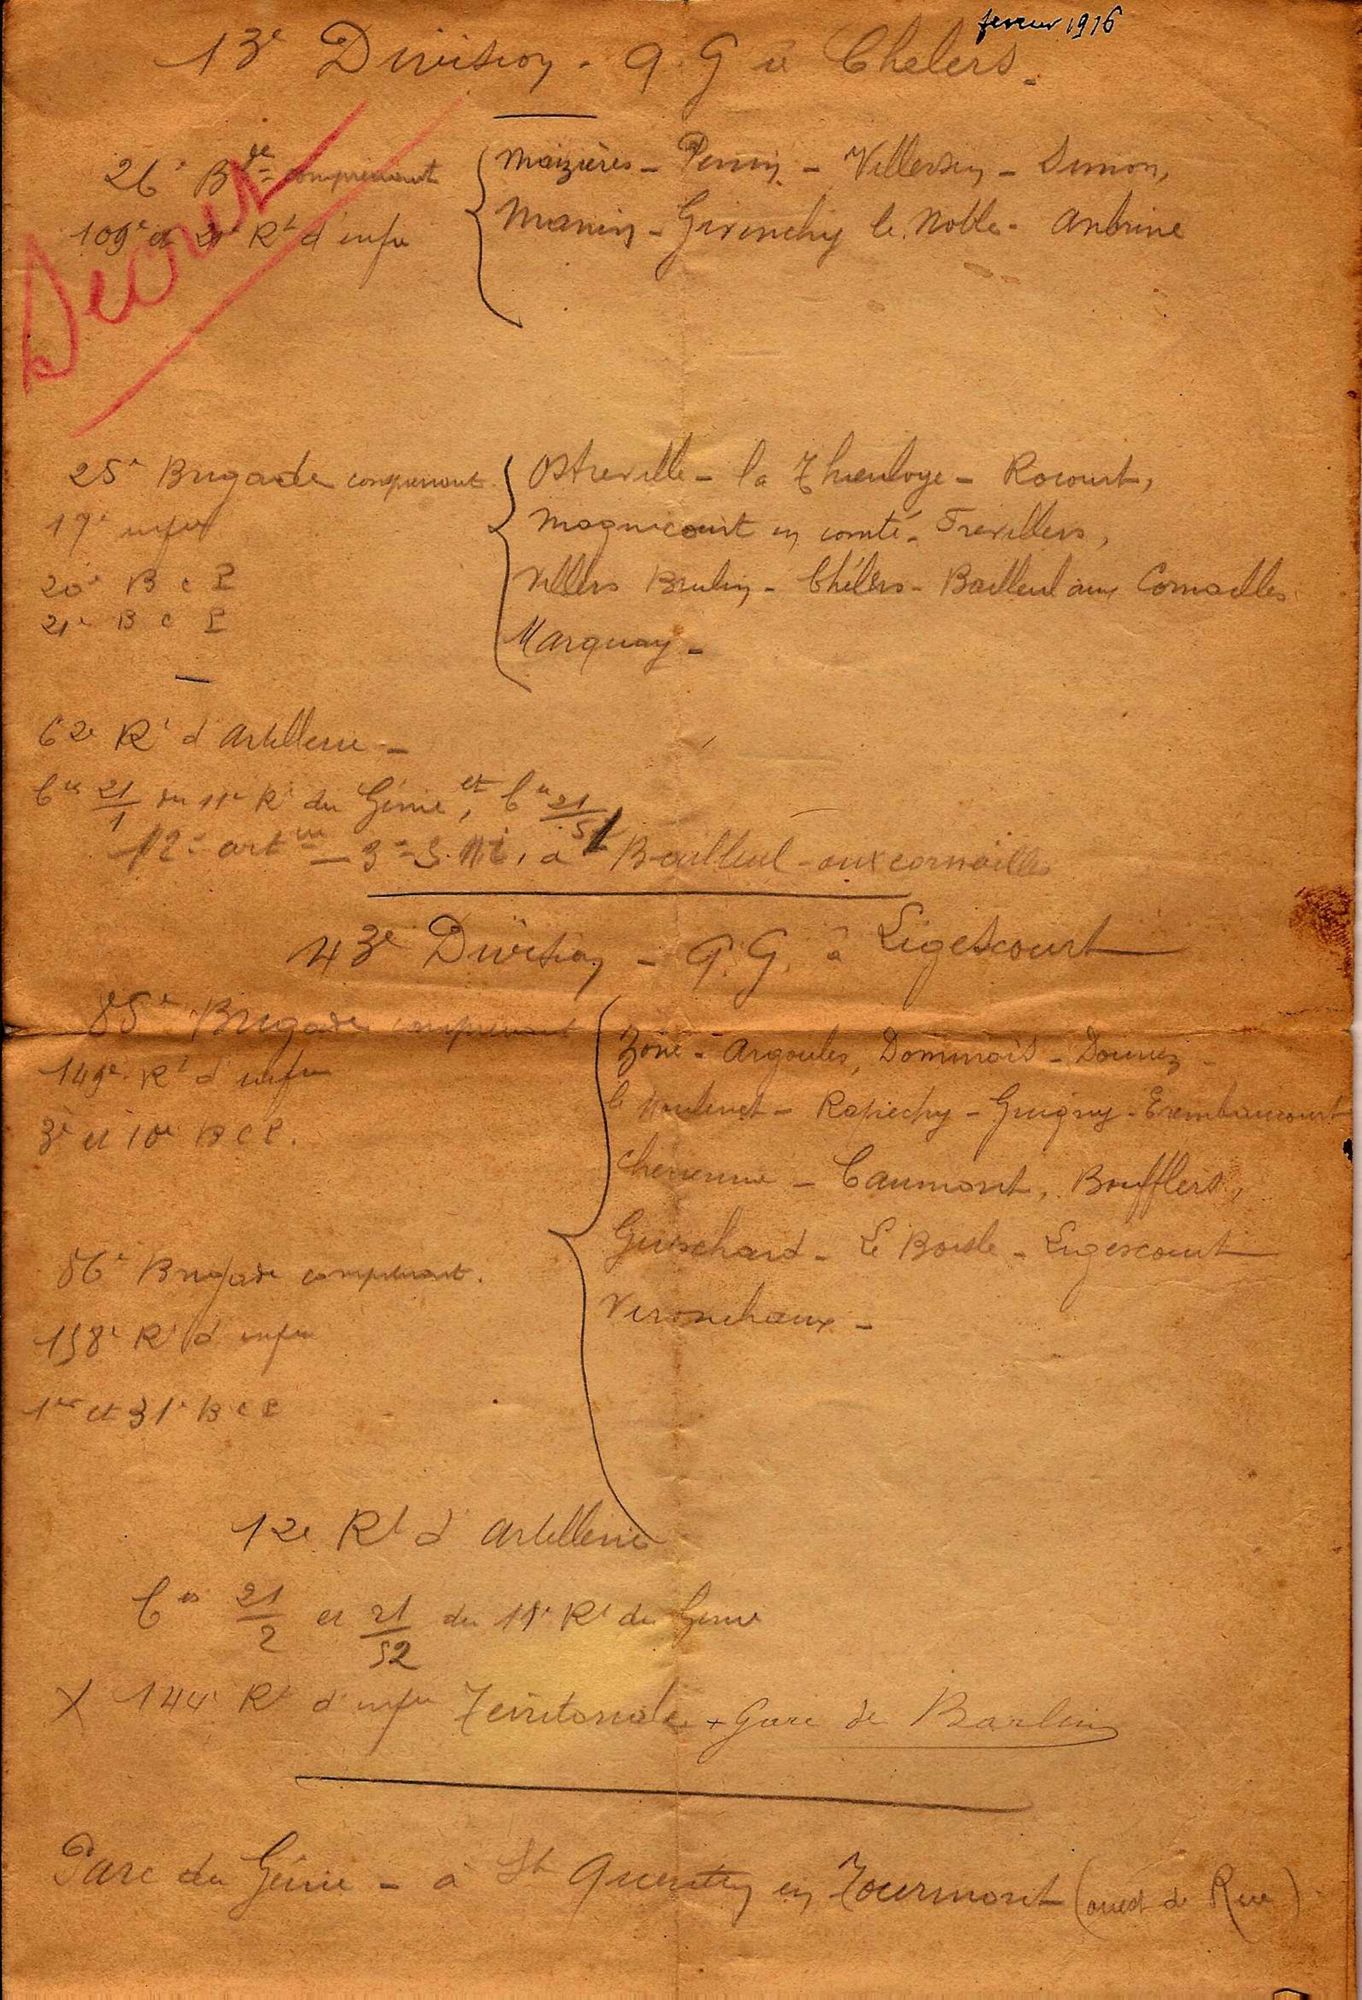 fevrier 1916
13e Division - Q.G à Chelers.
Secret
26e Bde comprenant
109e et 21e Rt d'infie
Maizières - Penin - Villersin - Simon,
Manin - Givenchy le Noble - Ambrine
25e Brigade comprenant
17e infie
20e B C P
21e B C P
Ostreville - la Thieuloye - Rocourt,
Magnicourt en comté - Frevillers,
Villers Brulin - Chélers - Bailleul aux Cornailles
Marquay -
62e Rt d'Artillerie -
Cies 21/1 du 11e Rt du Génie, et Cie 21/51
12e artie - 3e S. M. I. à Bailleul-aux cornailles
43e Division - Q.G. à Ligescourt
85e Brigade comprenant
149e Rt d'infie
3e et 10e B C P.
86e Brigade comprenant.
158e Rt d'infie
1er et 31e B C P
Zone - Argoules, Dominois - Douriez -
le Moulinet - Rapechy - Guigny - Erembaucourt
Cherienne - Caumont, Boufflers,
Gueschard - Le Boisle - Ligescourt
Vironchaux -
12e Rt d'Artillerie
Cies 21/2 et 21/52 du 11e Rt du Genie
X 144e Rt d'infie Territoriale + Gare de Barlin
Parc du Génie - à St Quentin en Tourmont (ouest de Rue)